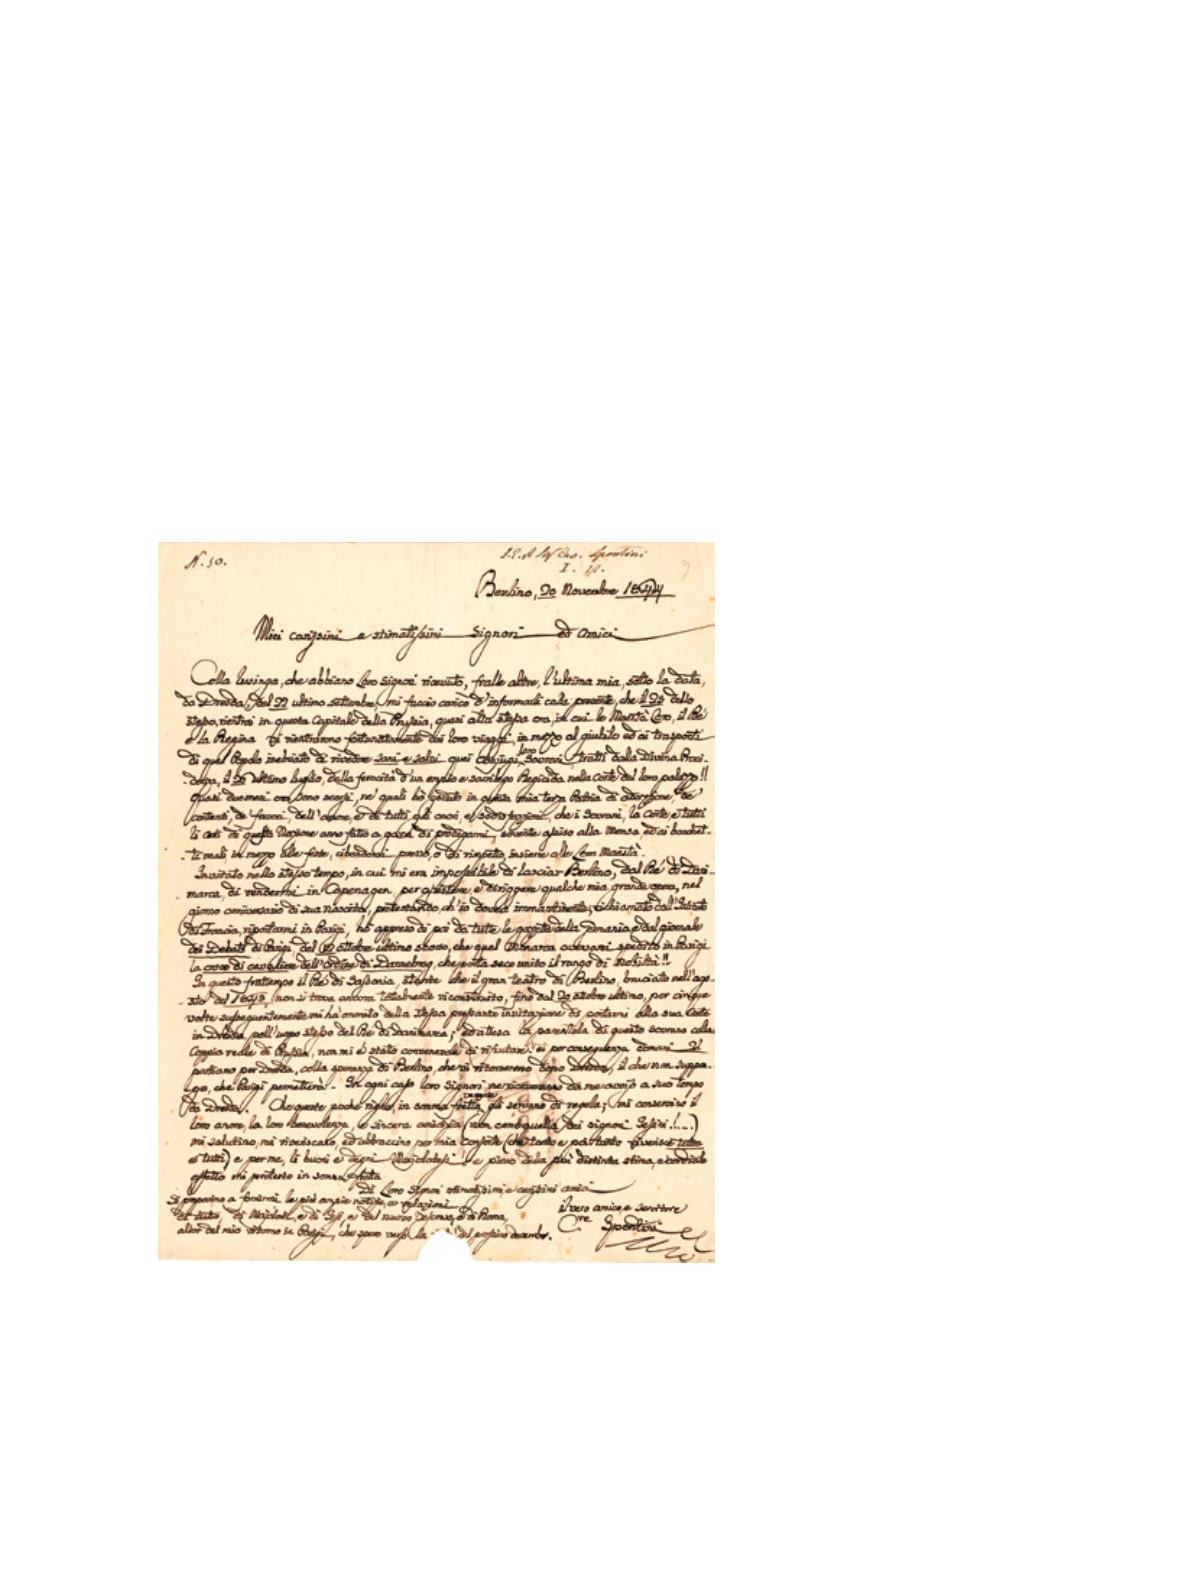 N. 50.
I. 18.
Berlino, 20 Novembre 1844
Miei carissimi e stimatissimi Signori ed Amici
Colla lusinga, che abbiano Loro Signori ricevuto, fralle altre, l'ultima mia, sotto la data,
da Dresda, del 22 ultimo settembre, mi faccio carico d'informarli colla presente, che il 23 dello
stesso, rientrai in questa Capitale della Prussia, quasi alla stessa ora, in cui le Maestà Loro, il Rè
e la Regina vi rientrarono fortunatamente dai loro viaggi, in mezzo al giubilo ed ai trasporti
di quel Popolo inebriato di rivedere sani e salvi quei conjugi loro Sovrani, tratti dalla Divina Provi-
-denza, il 26 ultimo luglio, della ferocità d'un empio e sacrilego Regicida nella Corte del loro palazzo!!
Quasi due mesi ora sono scorsi, ne' quali hò goduto in questa mia terza Patria di adozzione, de'
contenti, de' favori, dell'amore, e di tutti gli onori, e soddisfazioni, che i Sovrani, la Corte e tutti
li Ceti di questa Nazione anno fatto a gara di prodigarmi, sovente assiso alla Mensa, ed ai banchet-
-ti reali, in mezzo alle feste, cibandomi presso, o di rimpetto, insieme alle Loro Maestà.
Invitato nello stesso tempo, in cui mi era impossibile di lasciar Berlino, dal Rè di Dani-
marca, di rendermi in Copenagen, per assistere e diriggere qualche mia grande opera, nel
giorno anniversario di sua nascita, pretestando, ch'io dovea immantinente, richiamato dall'Istituto
di Francia, riportarmi in Parigi, hò appreso di poi da tutte le gazette della Germania e dal giornale
dei Debats di Parigi del ottobre ultimo scorso, che quel Monarca aveami spedito in Parigi
la croce di cavaliere dell'Ordine di Dannebrog, che porta seco unito il rango di Nobiltà!!
In questo frattempo il Rè di Sassonia, stante che il gran teatro di Berlino, bruciato nell'ago-
-sto del 1843, non si trova ancora totalmente ricostruito, fino dal 20 ottobre ultimo, per cinque
volte susseguentemente mi ha onorato della stessa pressante invitazione di portarmi alla sua Corte
in Dresda, pell'uopo stesso del Rè di Danimarca; ed attesa la parentela di questo sovrano colla
Coppia reale di Prussia, non mi è stato convenevole di rifiutare: ei per conseguenza domani 21
partiamo per Dresda, colla speranza di Berlino, che vi ritorneremo dopo Dresda, il che non suppon-
-go, che Parigi permetterà. In ogni caso loro signori ne riceveranno da me avviso a suo tempo
da Dresda. Che queste poche righe, in somma fretta, gli servano di regola; mi conservino il
loro amore, la loro benevolenza, e sincera amicizia (non come quella dei signori Jesini!.....)
mi salutino, mi riveriscano, ed abbraccino per mia Consorte (che tanto e poi tanto riverisce tutte
e tutti) e per me, li buoni e degni Majolatesi! e pieno della più distinta stima, e cordiale
affetto mi protesto in somma fretta
Di Loro Signori stimatissimi e carissimi amici
Si preparino a fornirmi le più ampie notizie, e relazioni
di tutto, di Majolati, e di Jesi, e del nuovo Vescovo, e di Roma,
allor del mio ritorno in Parigi, che spero verso la del prossimo decembre.
il vero amico, e servitore
Spontini